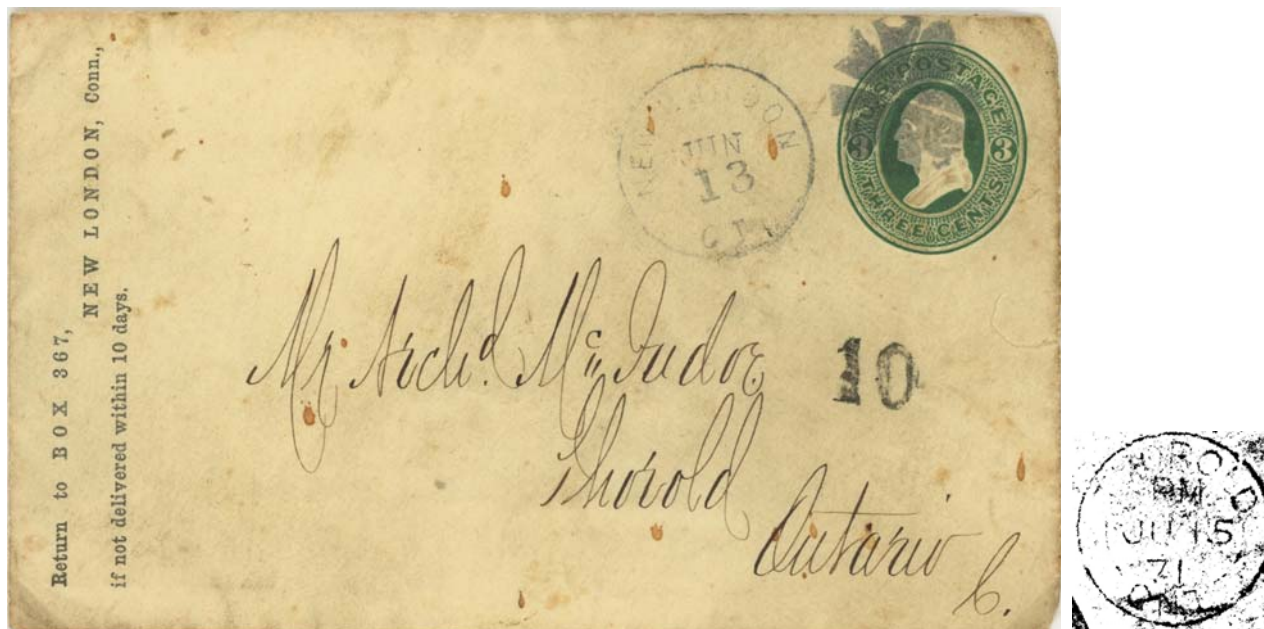 Return to BOX 367,
NEW LONDON, Conn.,
if not delivered within 10 days.
NEW LONDON
JUN
13
CT.
U.S. POSTAGE
3 3
THREE CENTS
Mr. Archd. Mc
10
Thorold
Ontario
C.
PM
JU 15
71
ONT